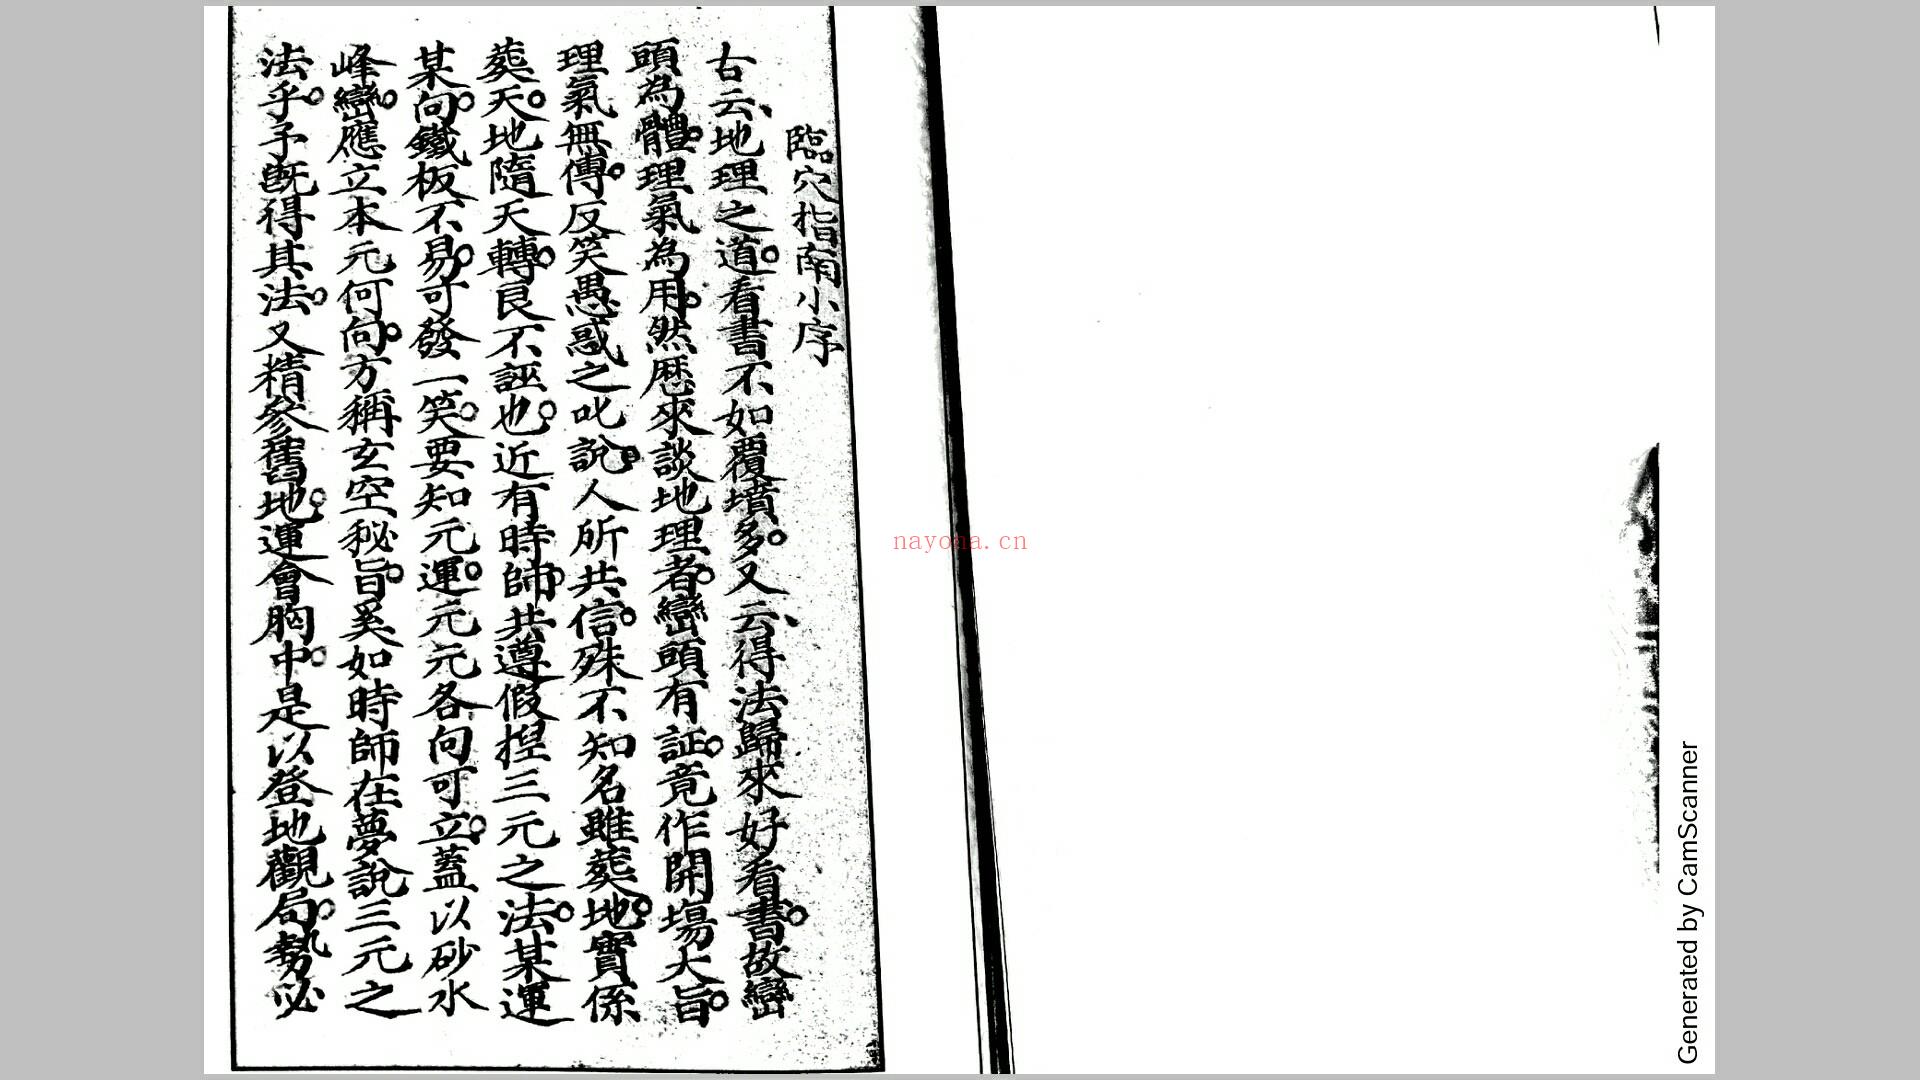 臨穴指南小序
古云、地理之道。看書不如覆墳多。又云、得法歸來好看書。故巒
頭為體。理氣為用。然歷來談地理者。巒頭有証。竟作開場大旨。
理氣無傳。反笑愚惑之叱說。人所共信。殊不知名雖葬地。實係
葬天。地隨天轉。良不誣也。近有時師。共遵假捏三元之法。某運
某向。鐵板不易。可發一笑。要知元運。元元各向可立。蓋以砂水
峰巒。應立本元何向。方稱玄空秘旨。奚如時師在夢說三元之
法乎。予既得其法。又精參舊地。運會胸中。是以登地觀局。勢必
nayona.cn
Generated by CamScanner